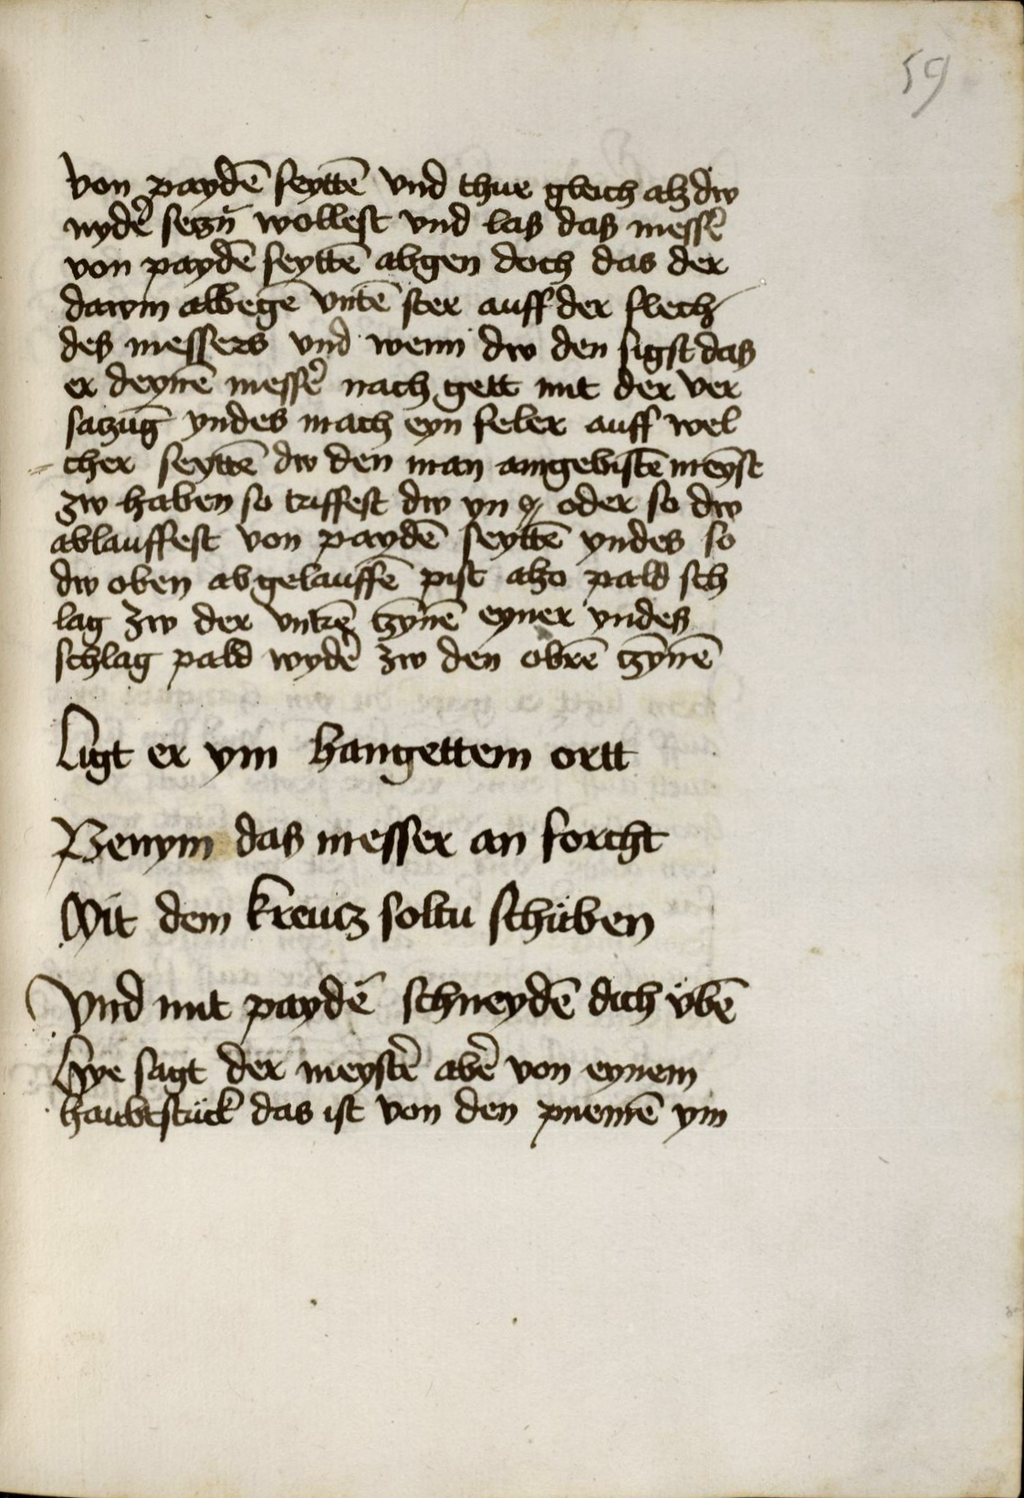 59
von paydē seyttē vnd thue gleich alz dw
nydē setzn̄ wollest vnd las das messē
von paydē seyttē abgen doch das der
dawm albegē vntē ster auff der flech
des messers vnd wenn dw den sigst das
er deynē messē nach gett mit der ver
satzūg yndes mach eyn feler auff wel
cher seyttē dw den man amgebistē meȳst
zw haben so triffest dw yn oder so dw
ablauffest von paydē seyttē yndes so
dw oben abgelauffē pist also pald sch
lag zw der vntrē tzȳnē eyner yndes
schlag pald wydē zw den obrē tzȳnē
Ligt er ym hangettem ortt
Benym das messer an forcht
Mit dem kreucz soltu schüben
Vnd mit paydē schneydē dich ȳbē
Hye sagt der meystē abē von eynem
haubtstück das ist von den pnemē ym